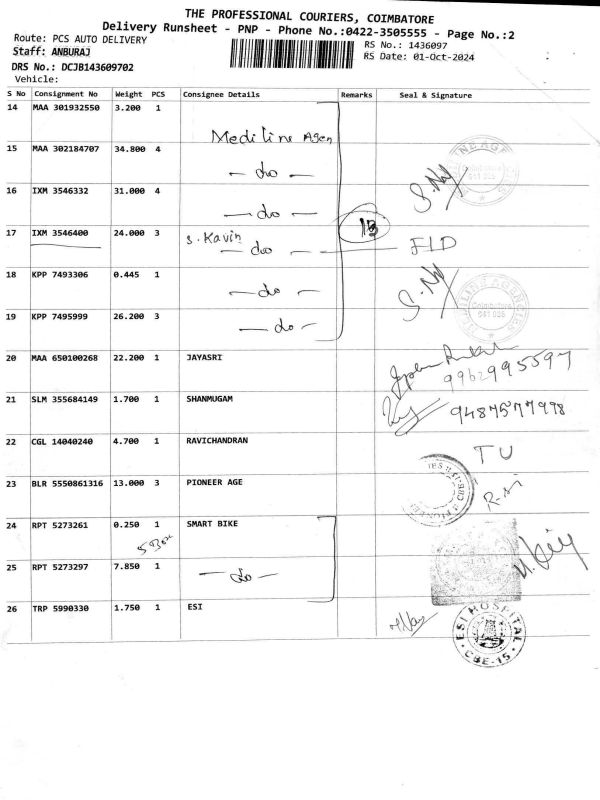 THE PROFESSIONAL COURIERS, COIMBATORE
Delivery Runsheet - PNP - Phone No.:0422-3505555 - Page No.:2
Route: PCS AUTO DELIVERY
RS No.: 1436097
Staff: ANBURAJ
RS Date: 01-Oct-2024
DRS No.: DCJB143609702
Vehicle:
S No Consignment No Weight PCS Consignee Details Remarks Seal & Signature
14 MAA 301932550 3.200 1 Mediline Agen
15 MAA 302184707 34.800 4 — do —
16 IXM 3546332 31.000 4 — do — 13
17 IXM 3546400 24.000 3 S. Kavin — do —
18 KPP 7493306 0.445 1 — do —
19 KPP 7495999 26.200 3 — do — Coimbatore
20 MAA 650100268 22.200 1 JAYASRI 9962995597
21 SLM 355684149 1.700 1 SHANMUGAM 9487577998
22 CGL 14040240 4.700 1 RAVICHANDRAN TU
23 BLR 5550861316 13.000 3 PIONEER AGE
24 RPT 5273261 0.250 1 SMART BIKE
25 RPT 5273297 7.850 1 — do —
26 TRP 5990330 1.750 1 ESI ESI HOSPITAL CBE-15